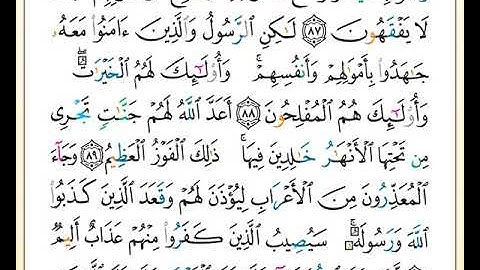 لَا يَفْقَهُونَ ﴿٨٧﴾ لَٰكِنِ ٱلرَّسُولُ وَٱلَّذِينَ ءَامَنُوا۟ مَعَهُۥ
جَٰهَدُوا۟ بِأَمْوَٰلِهِمْ وَأَنفُسِهِمْ ۚ وَأُو۟لَٰٓئِكَ لَهُمُ ٱلْخَيْرَٰتُ ۖ
وَأُو۟لَٰٓئِكَ هُمُ ٱلْمُفْلِحُونَ ﴿٨٨﴾ أَعَدَّ ٱللَّهُ لَهُمْ جَنَّٰتٍ تَجْرِى
مِن تَحْتِهَا ٱلْأَنْهَٰرُ خَٰلِدِينَ فِيهَا ۚ ذَٰلِكَ ٱلْفَوْزُ ٱلْعَظِيمُ ﴿٨٩﴾ وَجَآءَ
ٱلْمُعَذِّرُونَ مِنَ ٱلْأَعْرَابِ لِيُؤْذَنَ لَهُمْ وَقَعَدَ ٱلَّذِينَ كَذَبُوا۟
ٱللَّهَ وَرَسُولَهُۥ ۚ سَيُصِيبُ ٱلَّذِينَ كَفَرُوا۟ مِنْهُمْ عَذَابٌ أَلِيمٌ